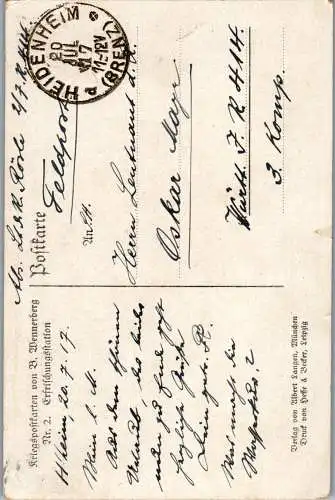 Abs. Lt. d. R. Rösle 2/J. R. 414
HEIDENHEIM
20
JUL
17
11-12V
(BRENZ)
Postkarte
Feldpost
An
Herrn Leutnant d. R.
Oskar Mayr
Württ. J. R. 414
3. Komp.
Kriegspostkarten von B. Wennerberg
Nr. 2. Erfrischungsstation
H'heim, 20.7.17.
Mein l. M.
Aus dem schönen
Urlaub des
Dir
herzliche Grüße
Dein
Was macht die
Verlag von Albert Langen, München
Druck von Hesse & Becker, Leipzig